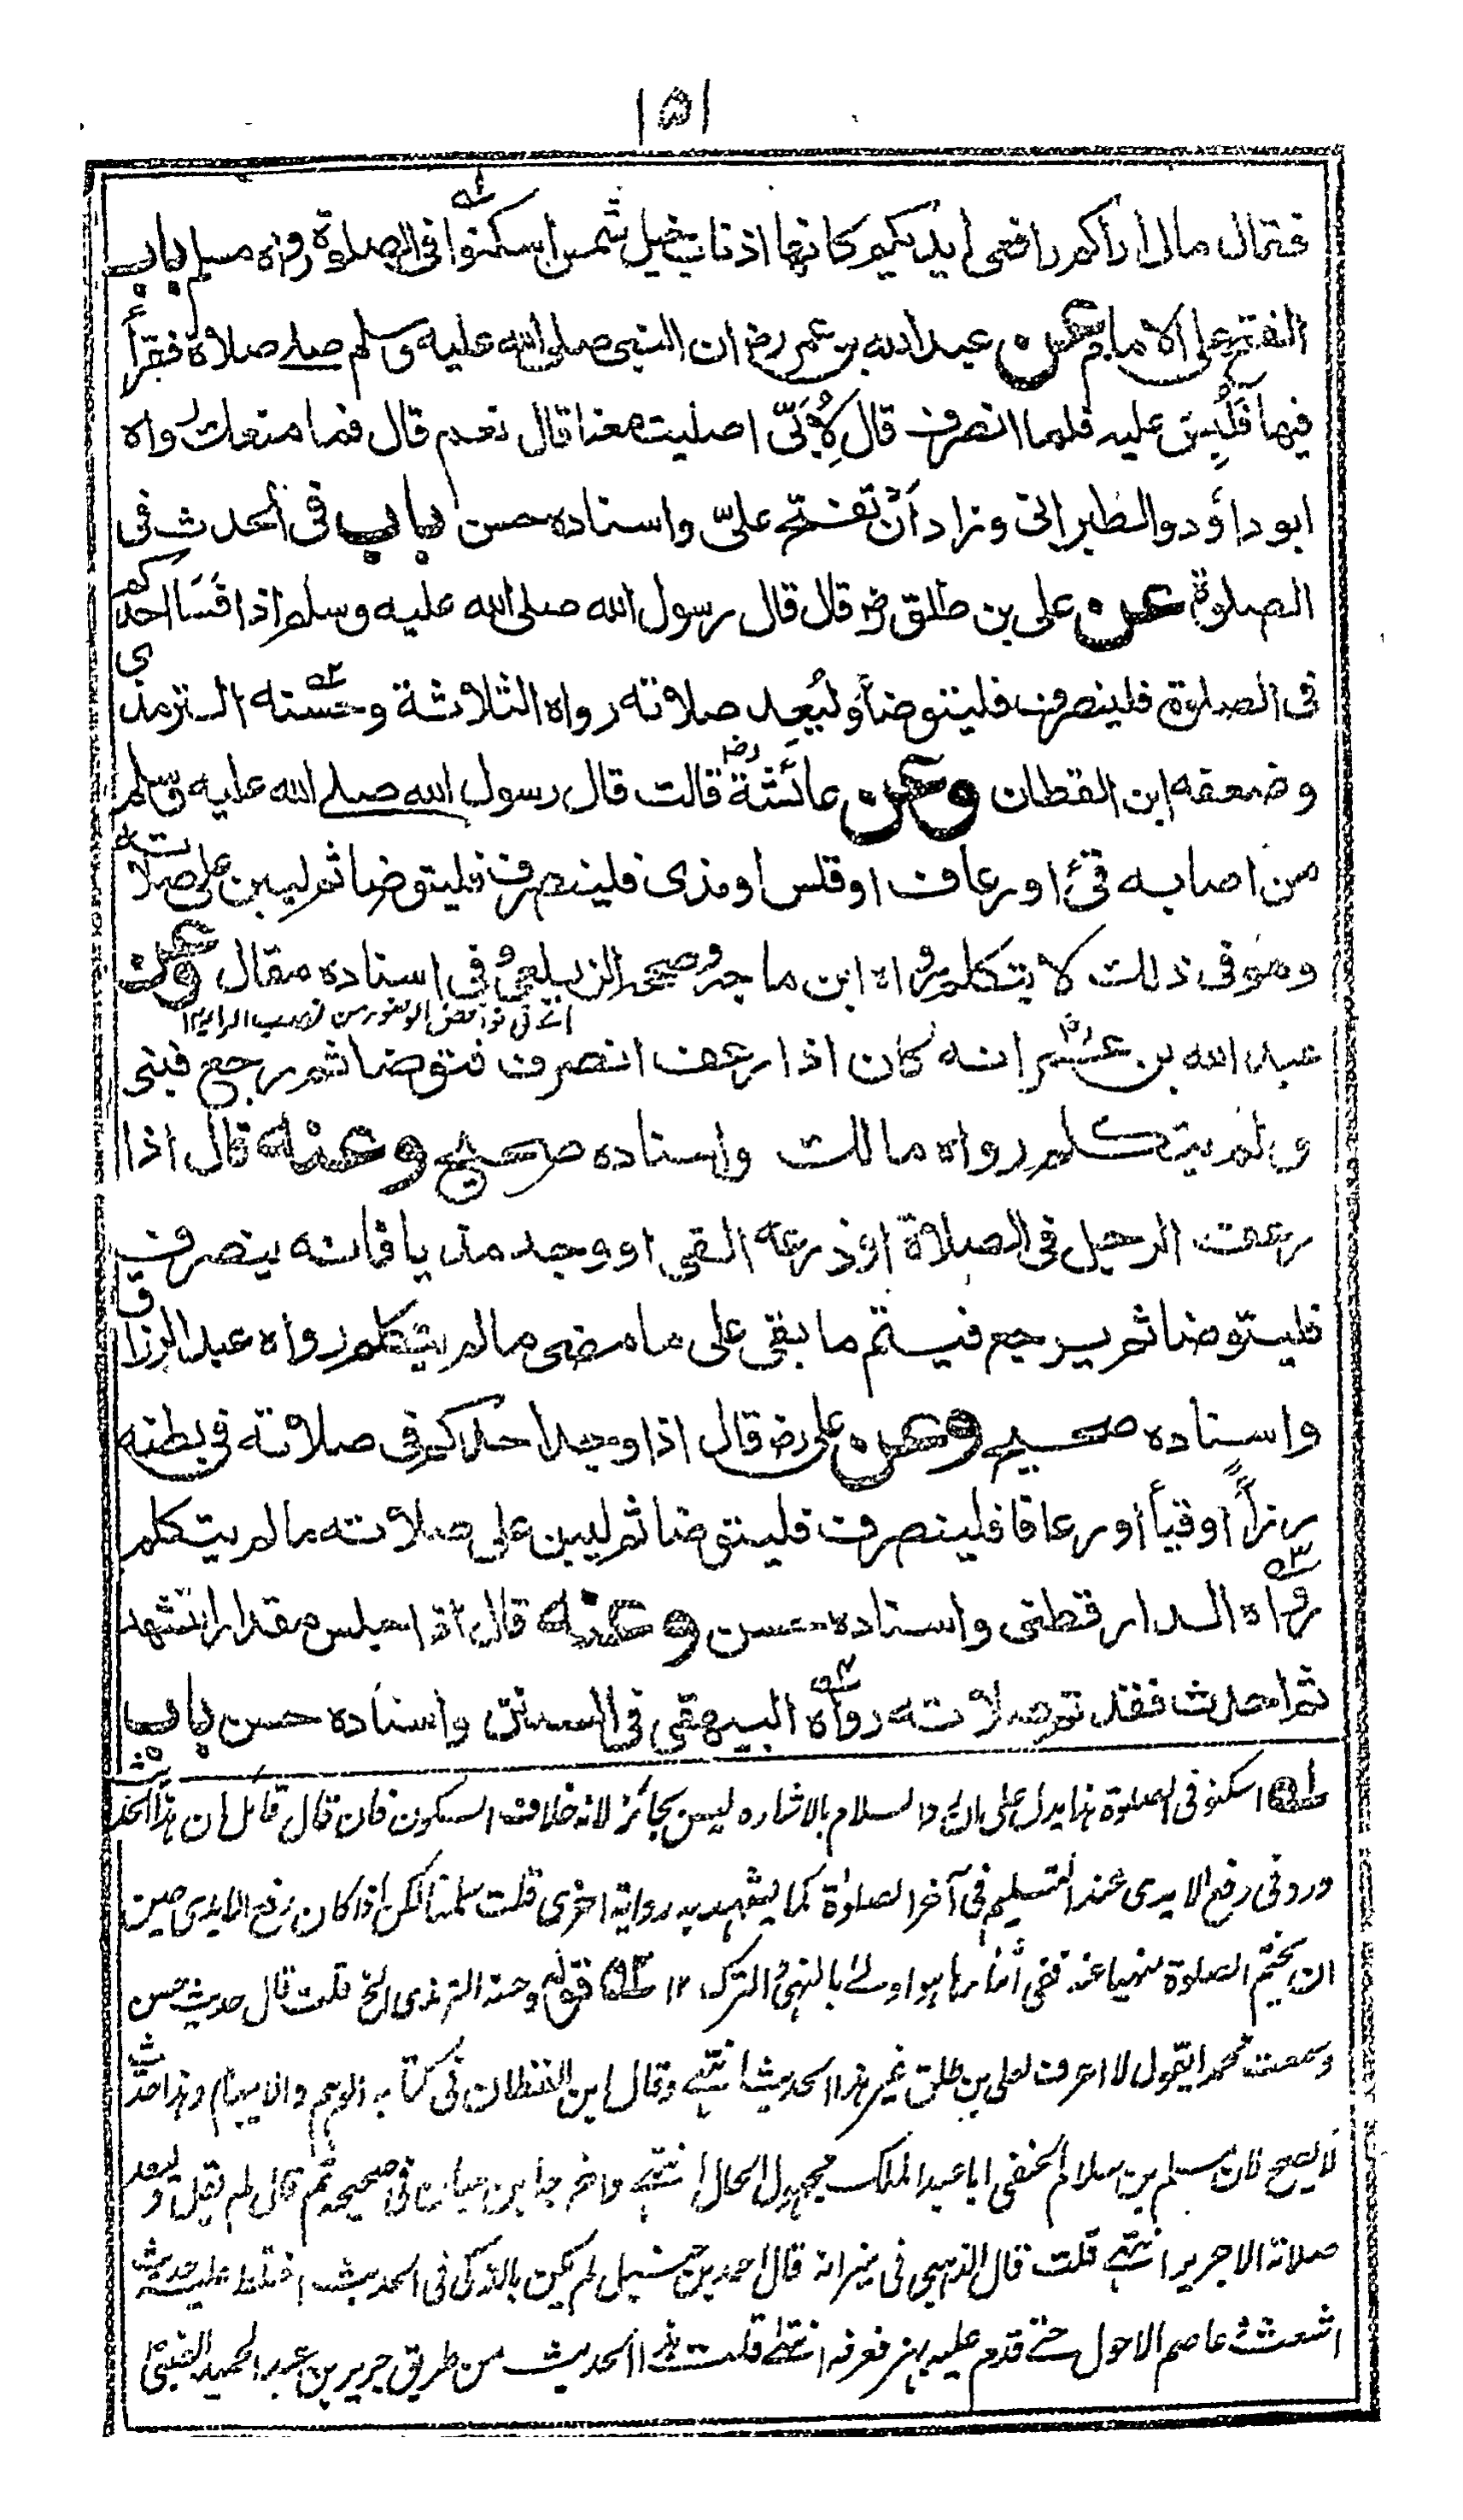 ۱۵۱
فقال مالی اراکم رافعی ایدیکم کانها اذناب خیل شمس اسکنوا فی الصلوة رواه مسلم باب
الفتح علی الامام عن عبدالله بن عمر رض ان النبی صلی الله علیه وسلم صلی صلاة فقرأ
فیها فَلُبِسَ علیه فلما انصرف قال لِاُبَیٍّ اصلیت معنا قال نعم قال فما منعک رواه
ابو داؤد والطبرانی وزاد اَنْ تفتح علیّ واسناده حسن باب فی الحدث فی
الصلوة عن علی بن طلق رض قال قال رسول الله صلی الله علیه وسلم اذا فَسَا احدکم
فی الصلوة فلینصرف فلیتوضأ ولیُعِد صلاته رواه الثلاثة وحسّنه الترمذی
وضعفه ابن القطان وعن عائشة رض قالت قال رسول الله صلی الله علیه وسلم
من اصابه قئ او رعاف او قلس او مذی فلینصرف فلیتوضا ثم لیبن علی صلاته
وهو فی ذلک لا یتکلم رواه ابن ماجه وصححه الزیلعی و فی اسناده مقال وعن
عبد الله بن عمر رض انه کان اذا رعف انصرف فتوضا ثم رجع فبنی
ولم یتکلم رواه مالک واسناده صحیح وعنه قال اذا
رعف الرجل فی الصلاة او ذرعه القی او وجد مذیا فانه ینصرف
فلیتوضا ثم یرجع فیتم ما بقی علی ما مضی ما لم یتکلم رواه عبد الرزاق
واسناده صحیح وعن علی رض قال اذا وجد احدکم فی صلاته فی بطنه
رزأً او قیأ او رعافا فلینصرف فلیتوضا ثم لیبن علی صلاته ما لم یتکلم
رواه الدارقطنی واسناده حسن وعنه قال اذا جلس مقدار التشهد
ثم احدث فقد تم صلاته رواه البیهقی فی السنن واسناده حسن باب
له اسکنو فی الصلوة هذا یدل علی ان رد السلام بالاشاره لیس بجائز لانه خلاف السکون فان قال قائل ان هذا الحدیث
ورد فی رفع الایدی عند التسلیم فی آخر الصلوٰة کما یشهد به روایة اخری قلت سلمنا لکن اذا کان رفع الایدی حین
ان یختم الصلوة منهیا عنه ففی اثنائها هو اولی بالنهی و الترک ۱۲ ٢ه قوله وحسنه الترمذی الخ قلت قال حدیث حسن
وسمعت محمدا یقول لا اعرف لعلی بن طلق غیر هذا الحدیث انتهی وقال ابن القطان فی کتابه الوهم والایهام وهذا حدیث
لا یصح فان مسلم بن سلام الحنفی ابا عبد الملک مجهول الحال انتهی واخرجه ابن حبان فی صحیحه ثم قال لم یقل ولیعد
صلاته الا جریر انتهی قلت قال الذهبی فی میزانه قال احمد بن حنبل لم یکن بالذکی فی الحدیث اختلط علیه حدیث
اشعث عاصم الاحول حتی قدم علیه بهز فعرفه انتهی قلت هذا الحدیث من طریق جریر بن عبد الحمید الضبی